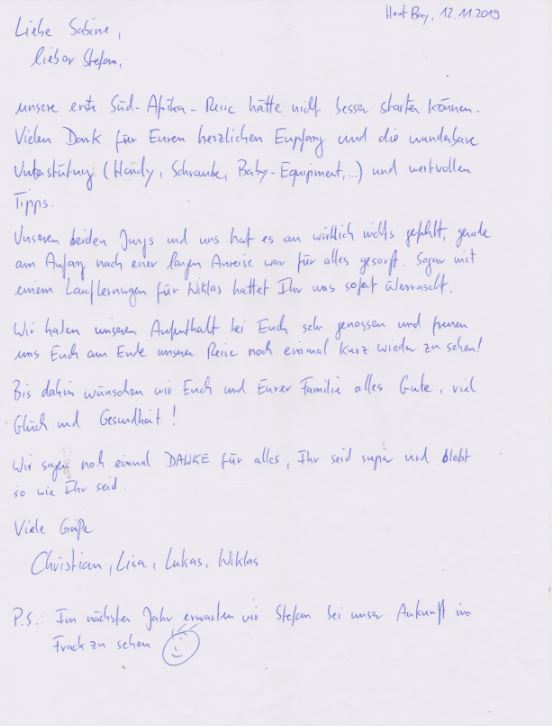 Hout Bay, 12.11.2019
Liebe Sabine,
lieber Stefan,
unsere erste Süd-Afrika-Reise hätte nicht besser starten können.
Vielen Dank für Euren herzlichen Empfang und die wunderbare
Unterstützung (Handy, Schraube, Baby-Equipment,...) und wertvollen
Tipps.
Unseren beiden Jungs und uns hat es an wirklich nichts gefehlt, gerade
am Anfang nach einer langen Anreise war für alles gesorgt. Sogar mit
einem Lauflernwagen für Niklas hattet Ihr uns sofort überrascht.
Wir haben unseren Aufenthalt bei Euch sehr genossen und freuen
uns Euch am Ende unserer Reise noch einmal kurz wieder zu sehen!
Bis dahin wünschen wir Euch und Eurer Familie alles Gute, viel
Glück und Gesundheit!
Wir sagen noch einmal DANKE für alles, Ihr seid super und bleibt
so wie Ihr seid.
Viele Grüße
Christian, Lisa, Lukas, Niklas
P.S.: Im nächsten Jahr erwarten wir Stefan bei unser Ankunft im
Frack zu sehen